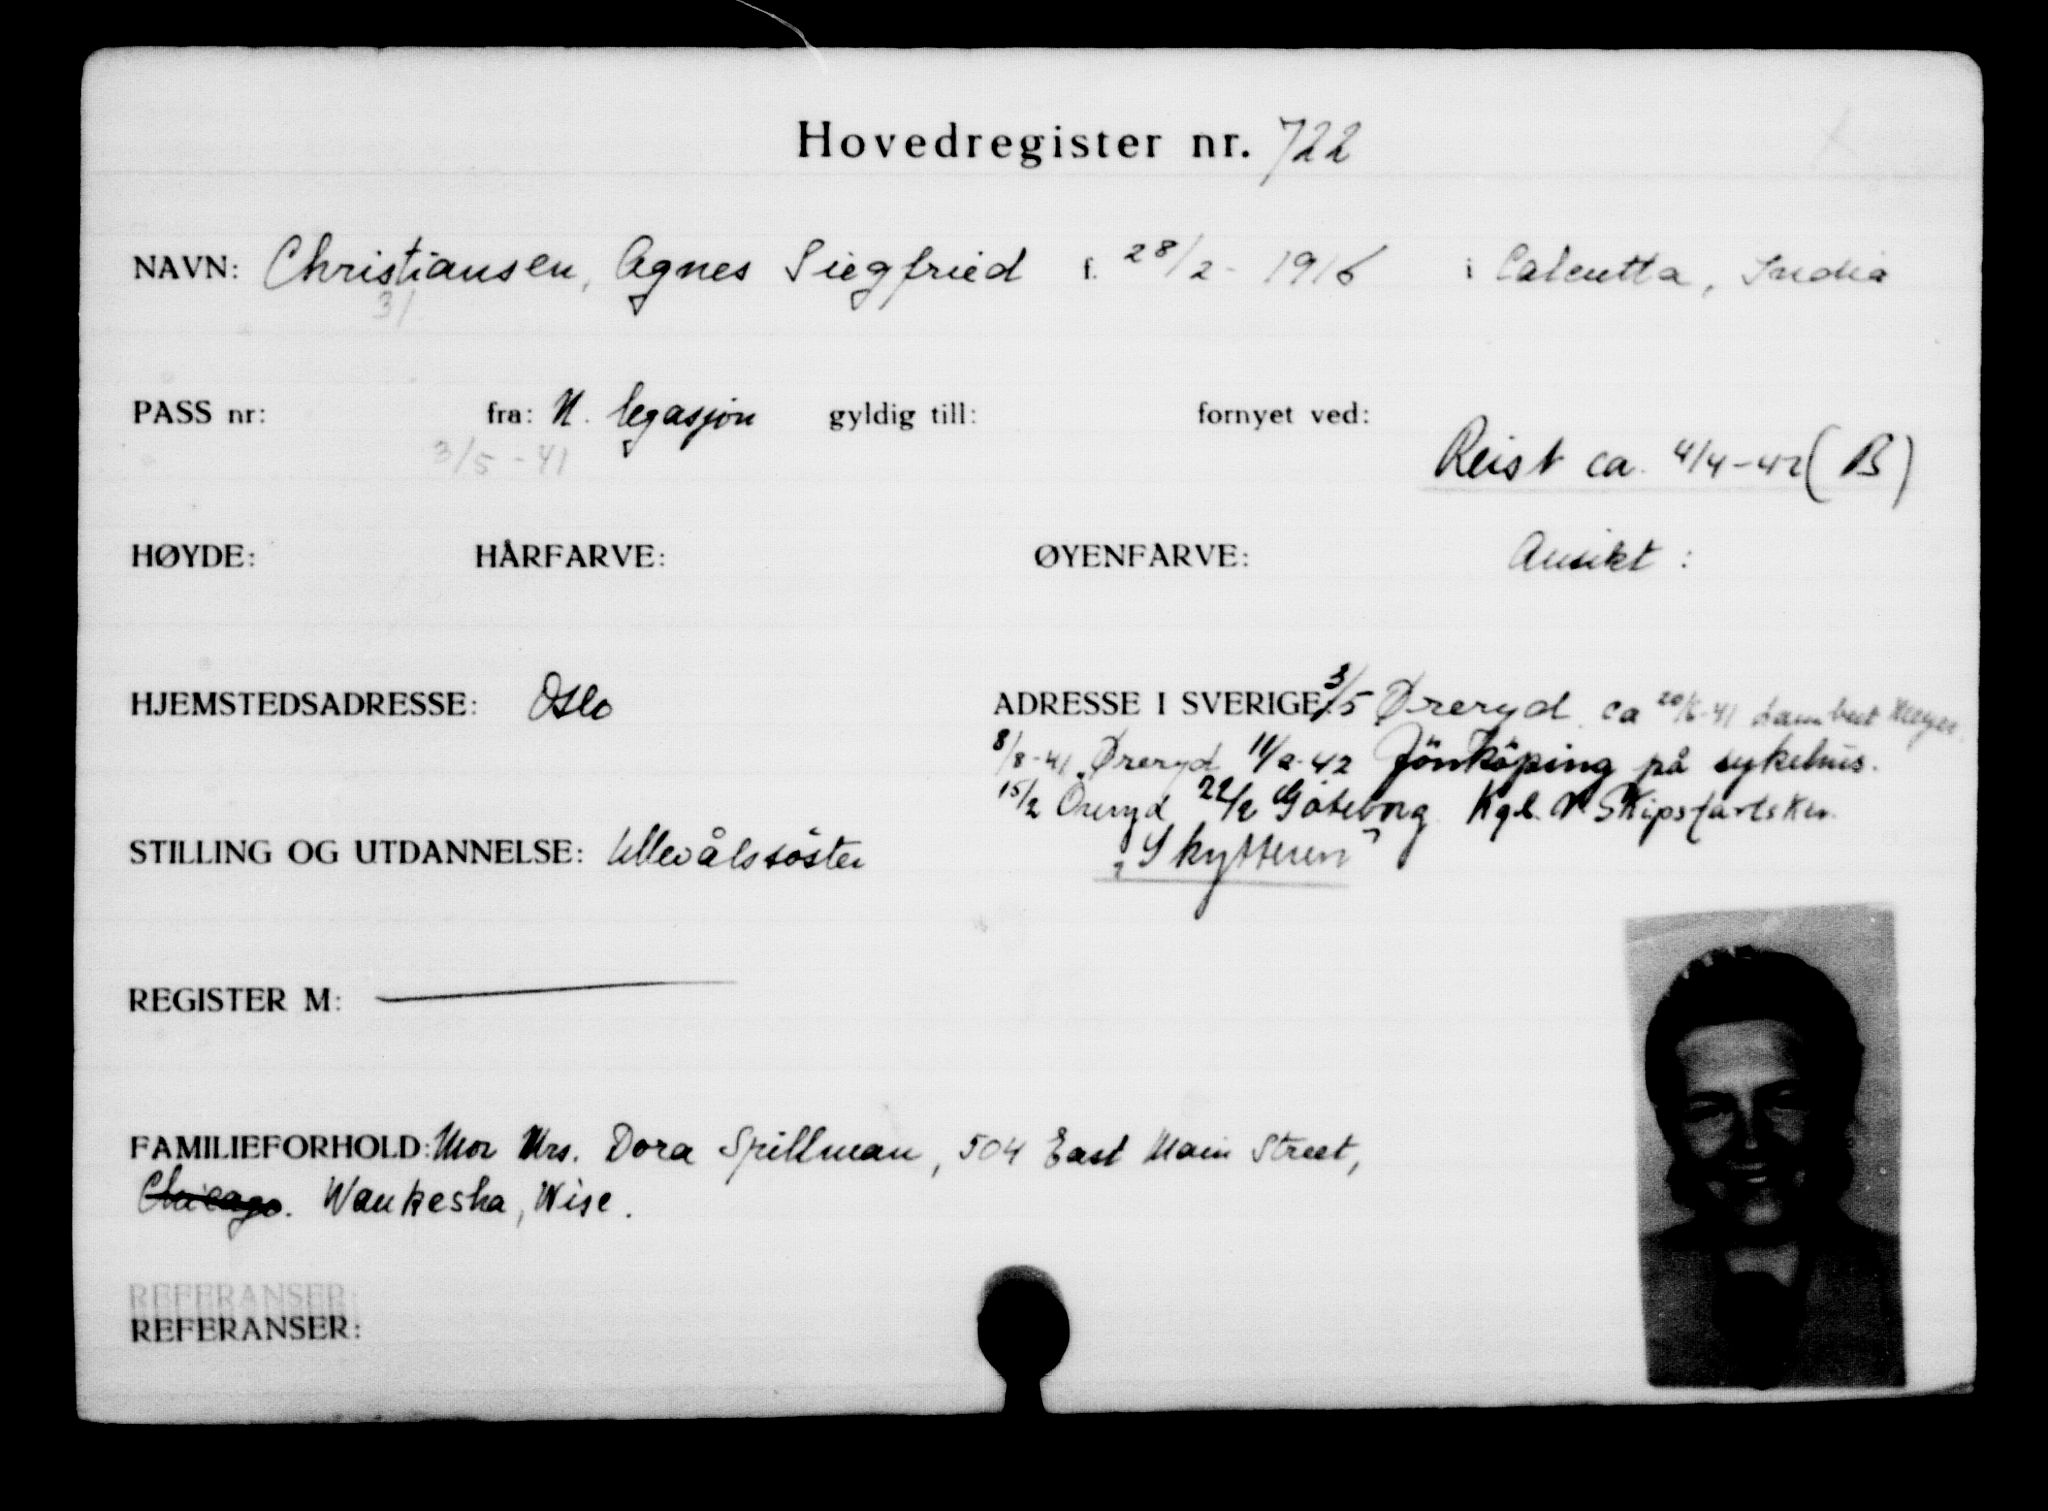 Hovedregister nr. 722
NAVN: Christiansen, Agnes Siegfried f. 28/2 - 1916 i Calcutta, India
31
PASS nr: fra: N. legasjon gyldig till: fornyet ved:
3/5 - 41
Reist ca. 4/4-42 (B)
HØYDE: HÅRFARVE: ØYENFARVE: Ansikt :
HJEMSTEDSADRESSE: Oslo
ADRESSE I SVERIGE: 3/5 Øreryd. ca 20/6-41
8/8-41 Øreryd 11/2-42 Jönköping på sykehus.
15/2 Öreryd 22/2 Göteborg. Kgl. N Skipsfartskn.
STILLING OG UTDANNELSE: Ullevålssöster
"Skytteren"
REGISTER M:
FAMILIEFORHOLD: Mor Mrs. Dora Spillman, 504 East Main Street,
Chicago. Waukesha, Wisc.
REFERANSER:
REFERANSER: